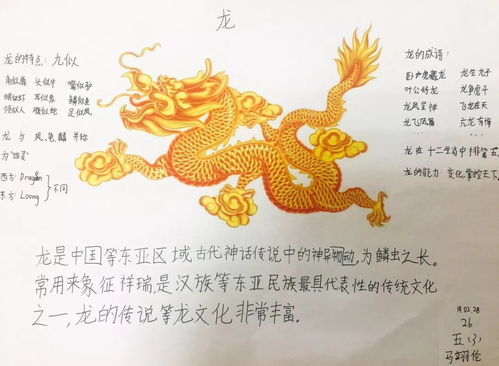 龙
龙的特点：九似
角似鹿 头似牛 嘴似驴
眼似虾 耳似象 鳞似鱼
须似人 腹似蛇 足似凤
龙与凤、龟、麟并称
为"四灵"
西方：Dragon
东方：Loong
不同
龙的成语：
卧虎藏龙 龙生九子
叶公好龙 龙争虎斗
龙凤呈祥 飞龙在天
龙飞凤舞 亢龙有悔
...... ......
龙在十二生肖中排第五
龙的能力：变化,掌控天下
龙是中国等东亚区域古代神话传说中的神异动,为鳞虫之长。
常用来象征祥瑞,是汉族等东亚民族最具代表性的传统文化
之一,龙的传说等龙文化非常丰富.
26
五（3）